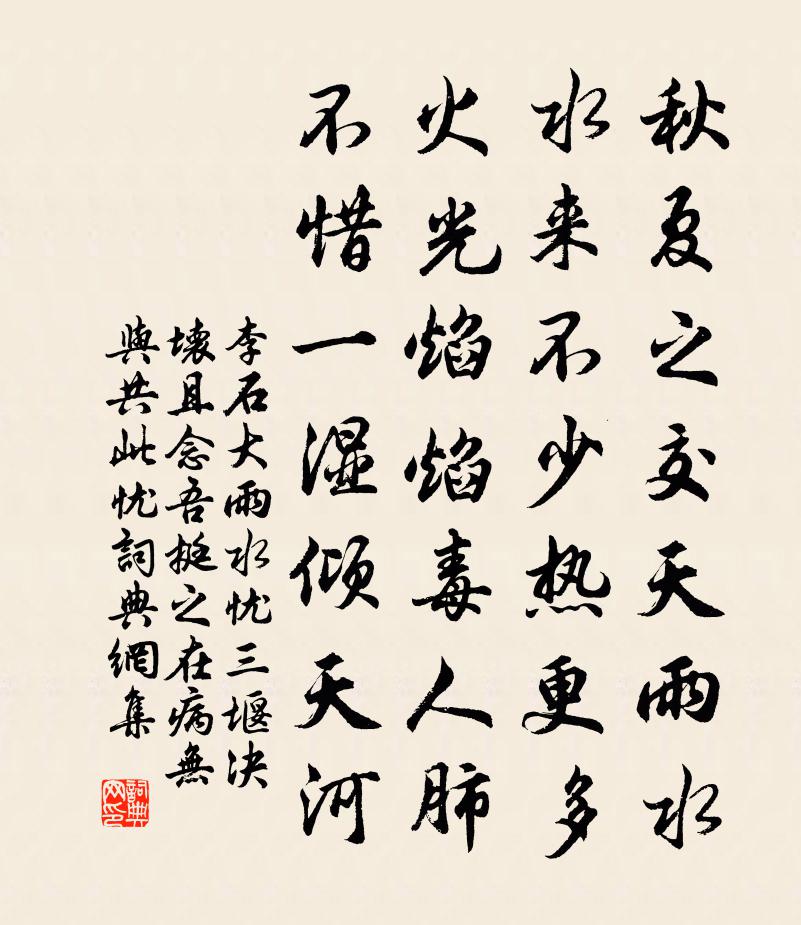 秋夏之交天雨水
水来不少热更多
火光焰焰毒人肺
不惜一湿倾天河
李石大雨水忧三堰决
壊且念吾挺之在病無
與共此忧詞典網集
詞典
网印